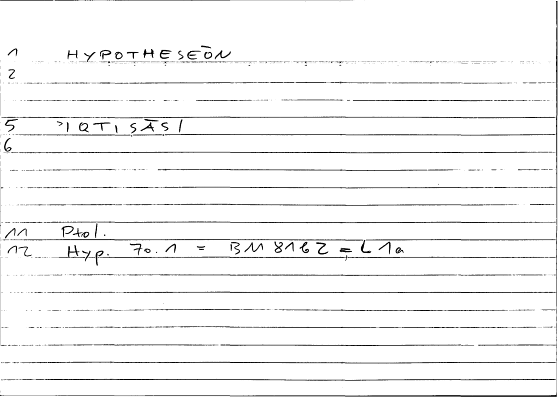 1 HYPOTHESEŌN
2
5 ʾIQTISĀSI
6
11 Ptol.
12 Hyp. 70.1 = BM 8162 = L 1a